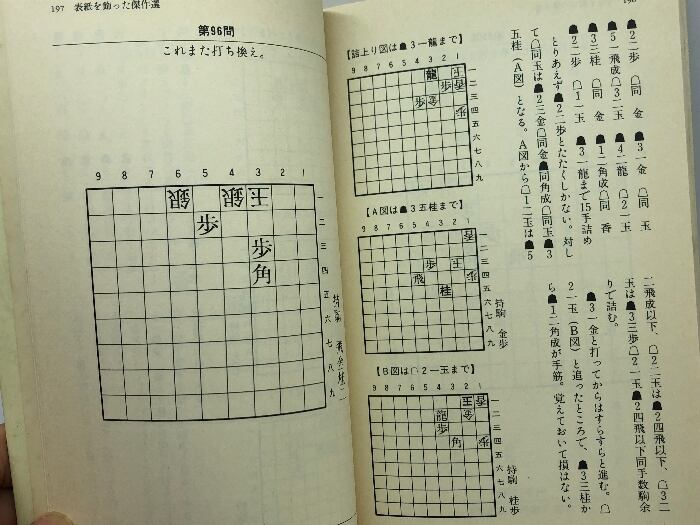 197 表紙を飾った傑作選
第96問
これまた打ち換え。
9 8 7 6 5 4 3 2 1
銀 銀 玉 一
歩 二
歩 三
角 四
五
六
七
八
九
持駒
【詰上り図は☗3一龍まで】
9 8 7 6 5 4 3 2 1
一
二
三
四
五
六
七
八
九
【A図は☗3五桂まで】
9 8 7 6 5 4 3 2 1
一
二
三
四
五
六
七
八
九
持駒 金歩
【B図は☖2一玉まで】
9 8 7 6 5 4 3 2 1
一
二
三
四
五
六
七
八
九
持駒 桂歩
☗2二歩 ☖同 金 ☗3一金 ☖同 玉
☗5一飛成☖3二玉 ☗4二龍 ☖2一玉
☗3三桂 ☖同 金 ☗1二角成☖同 香
☗2二歩 ☖1一玉 ☗3一龍まで15手詰め
とりあえず☗2二歩とたたくしかない。対し
て☖同玉は☗2三金☖同金☗同角成☖同玉☗3
五桂（A図）となる。A図から☖1二玉は☗5
二飛成以下、☖2二玉は☗2四飛以下、☖3二
玉は☗3三歩☖2一玉☗2四飛以下同手数駒余
りで詰む。
☗3一金と打ってからはすらすらと進む。☖
2一玉（B図）と追ったところで、☗3三桂か
ら☗1二角成が手筋。覚えておいて損はない。